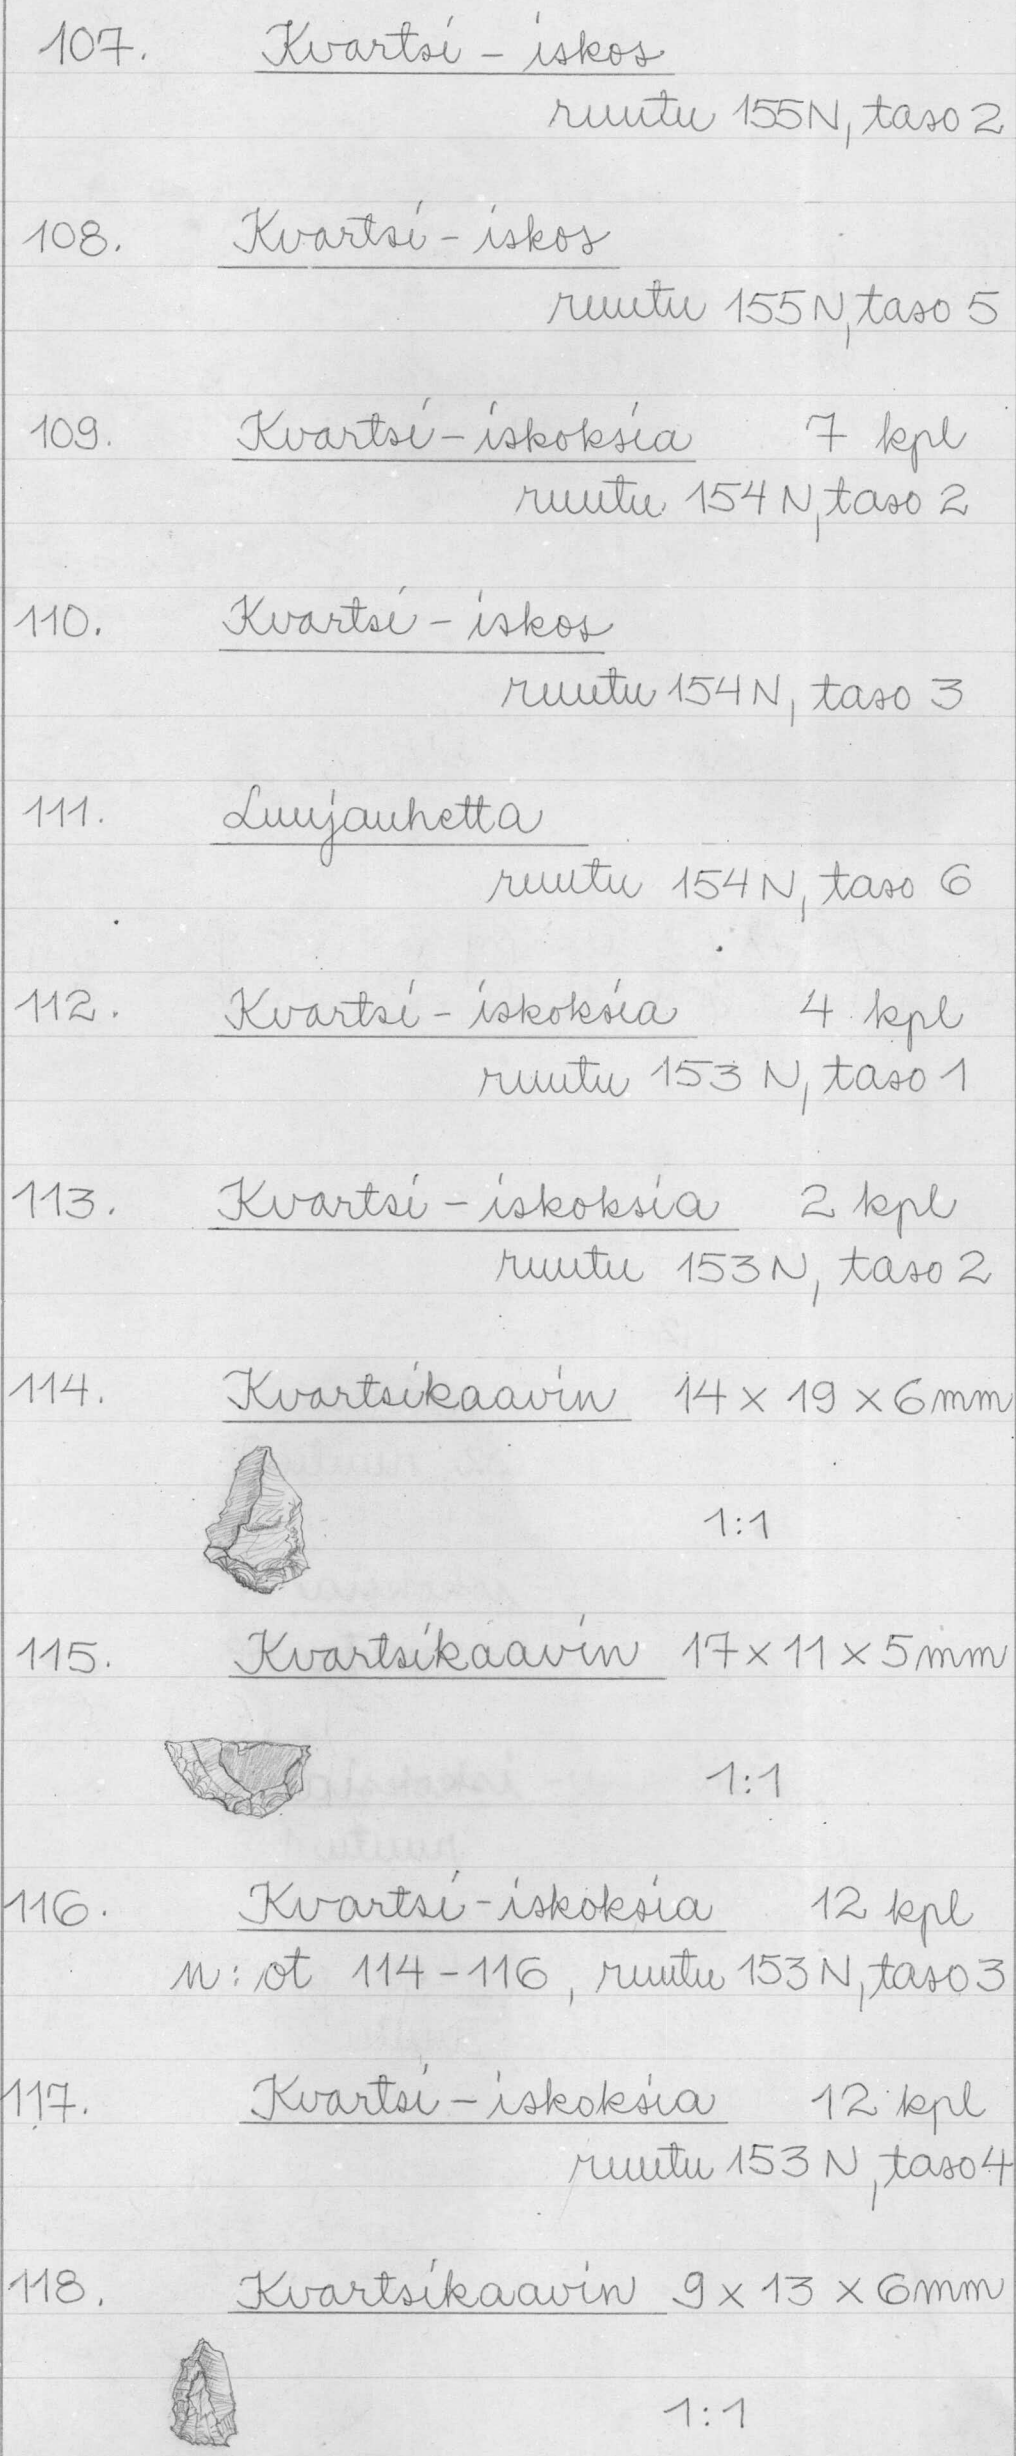 107. Kvartsi - iskos
ruutu 155N, taso 2
108. Kvartsi - iskos
ruutu 155N, taso 5
109. Kvartsi - iskoksia 7 kpl
ruutu 154N, taso 2
110. Kvartsi - iskos
ruutu 154N, taso 3
111. Luujauhetta
ruutu 154N, taso 6
112. Kvartsi - iskoksia 4 kpl
ruutu 153N, taso 1
113. Kvartsi - iskoksia 2 kpl
ruutu 153N, taso 2
114. Kvartsikaavin 14 x 19 x 6mm
1:1
115. Kvartsikaavin 17 x 11 x 5mm
1:1
116. Kvartsi - iskoksia 12 kpl
n:ot 114-116, ruutu 153N, taso 3
117. Kvartsi - iskoksia 12 kpl
ruutu 153N, taso 4
118. Kvartsikaavin 9 x 13 x 6mm
1:1